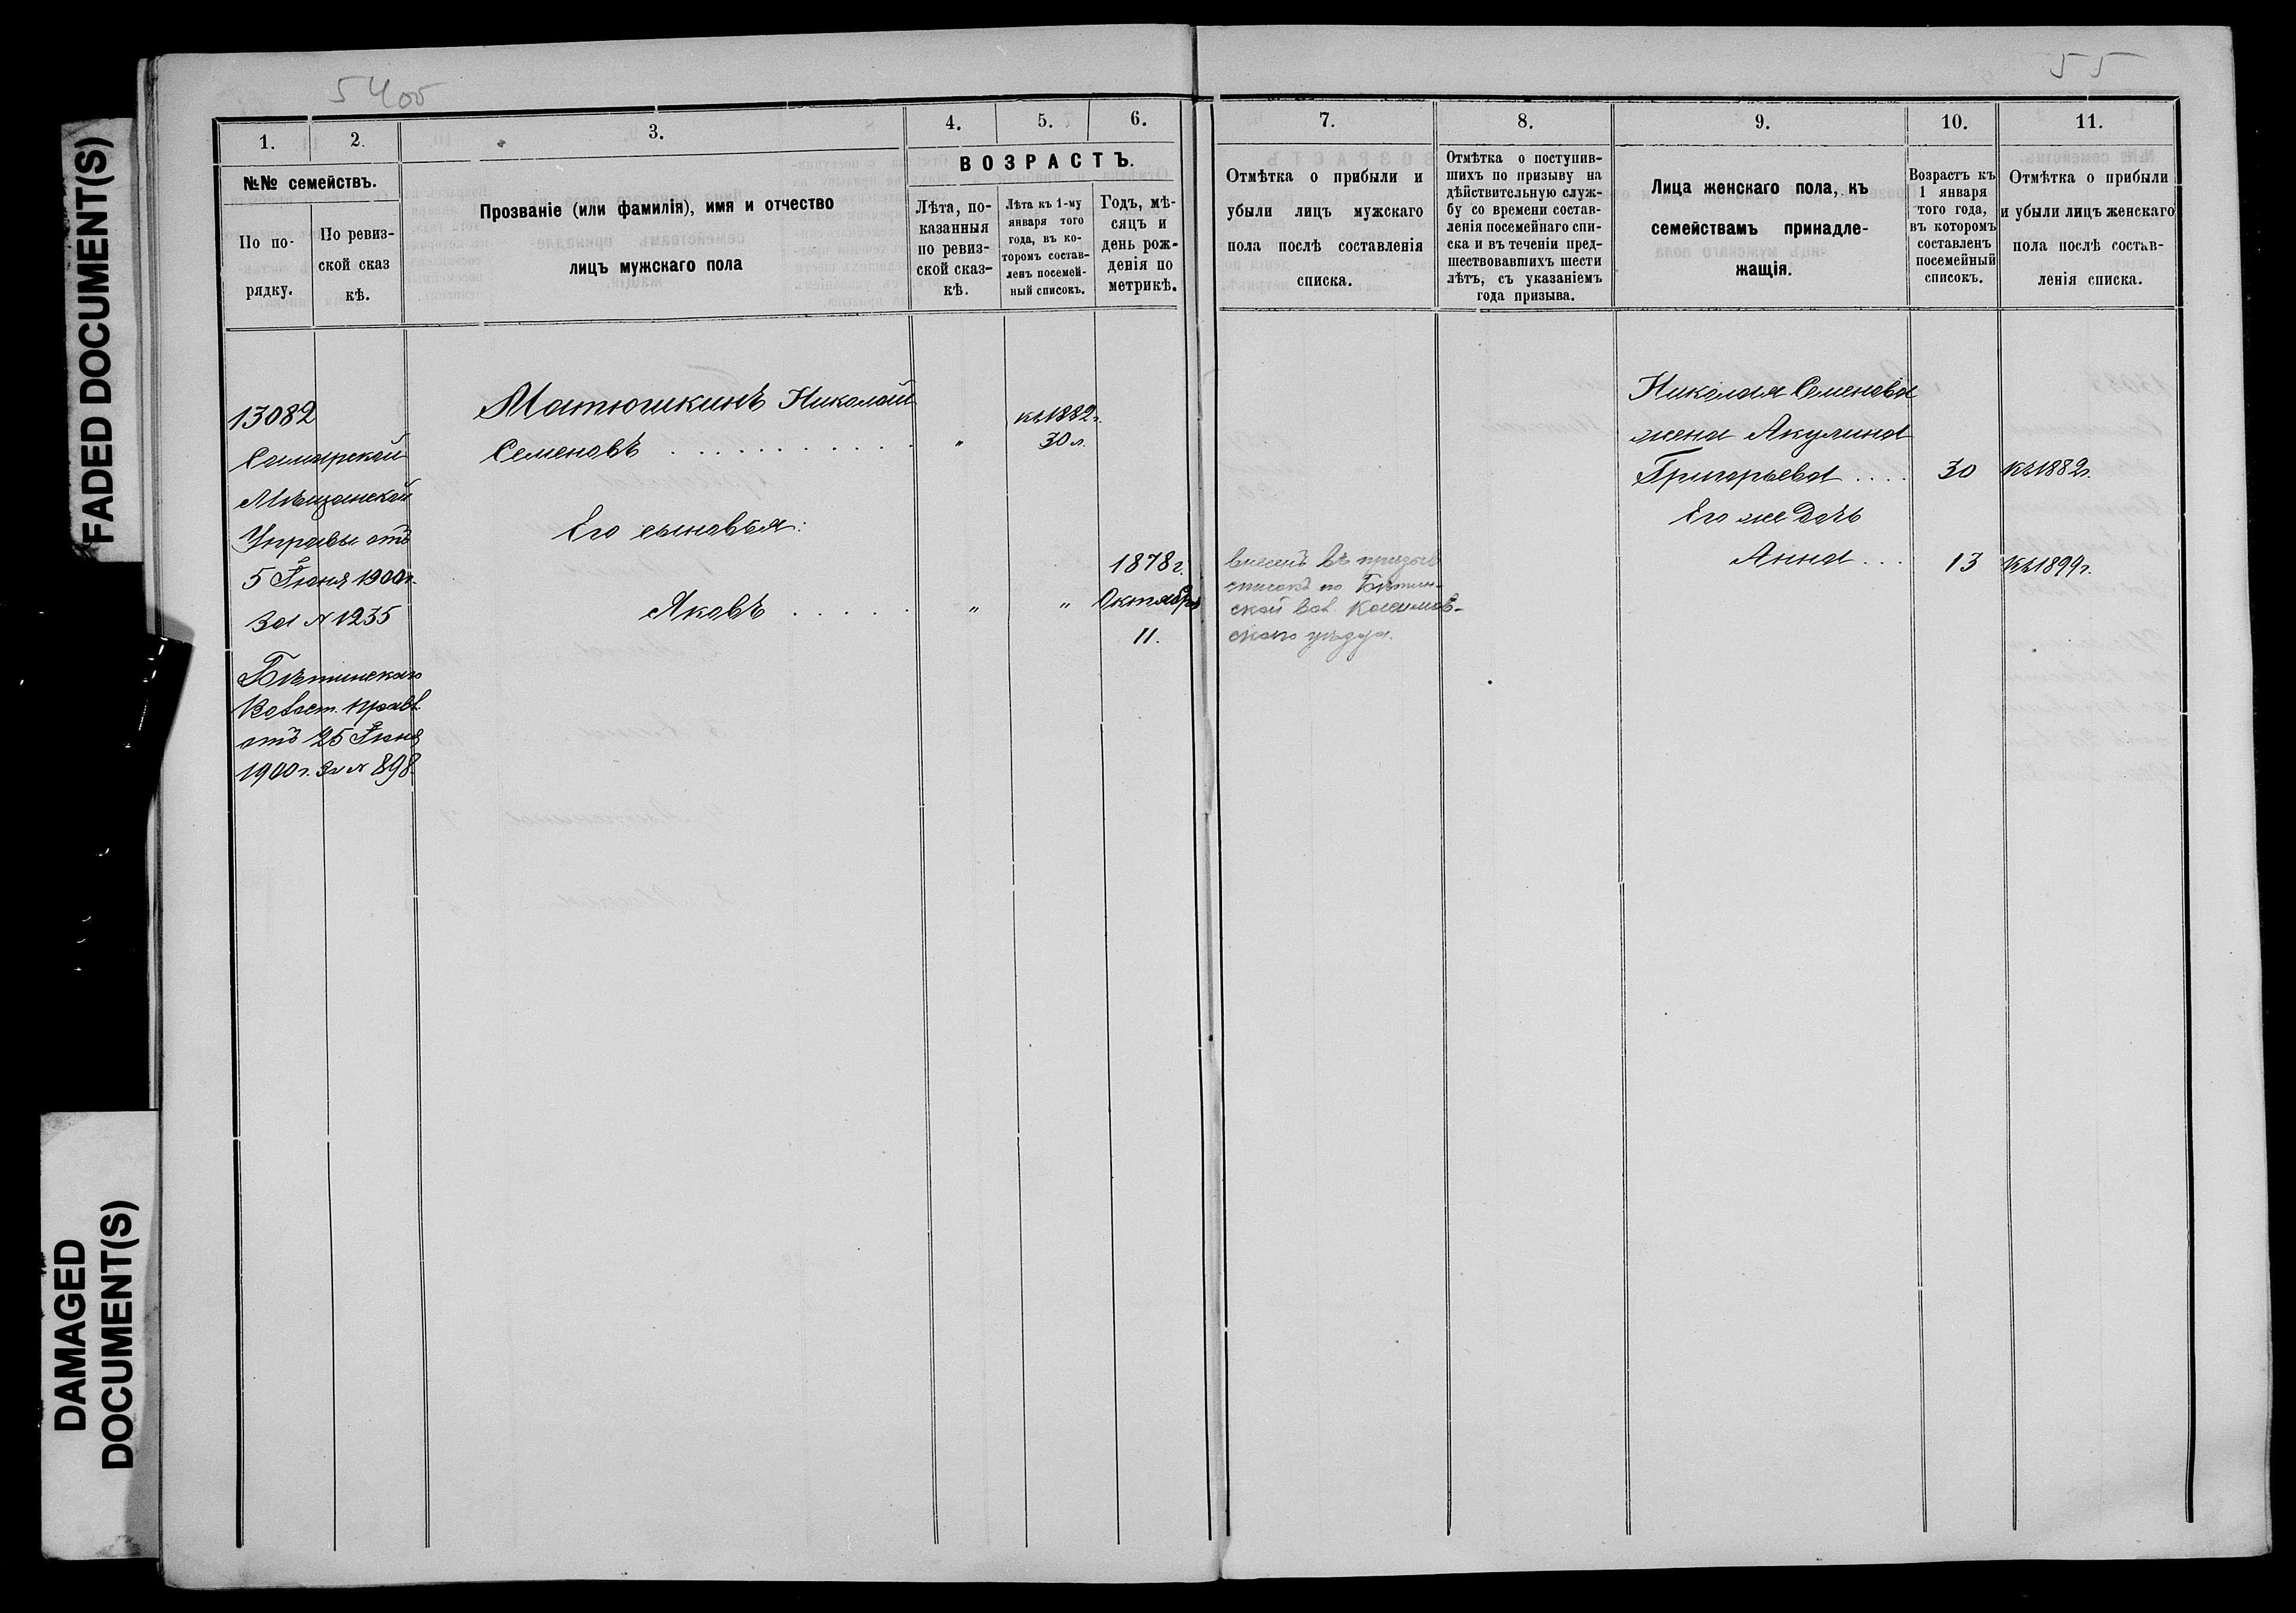 FADED DOCUMENT(S)
DAMAGED
DOCUMENT(S)
54об
55
1. 2. 3. 4. 5. 6.
№№ семействъ.
По по-
рядку.
По ревиз-
ской сказ
кѣ.
Прозваніе (или фамилія), имя и отчество
лицъ мужскаго пола
ВОЗРАСТЪ.
Лѣта, по-
казанныя
по ревиз-
ской сказ-
кѣ.
Лѣта къ 1-му
января того
года, въ ко-
торомъ состав-
ленъ посемей-
ный списокъ.
Годъ, мѣ-
сяцъ и
день рож-
денія по
метрикѣ.
7. 8. 9. 10. 11.
Отмѣтка о прибыли и
убыли лицъ мужскаго
пола послѣ составленія
списка.
Отмѣтка о поступив-
шихъ по призыву на
дѣйствительную служ-
бу со времени состав-
ленія посемейнаго спи-
ска и въ теченіи пред-
шествовавшихъ шести
лѣтъ, съ указаніемъ
года призыва.
Лица женскаго пола, къ
семействамъ принадле-
жащія.
Возрастъ къ
1 января
того года,
въ которомъ
составленъ
посемейный
списокъ.
Отмѣтка о прибыли
и убыли лицъ женскаго
пола послѣ состав-
ленія списка.
13082
Самарской
Мѣщанской
Управы отъ
5 Іюня 1900г.
за № 1235
Бѣтинскаго
Волост. Правл.
отъ 25 Іюня
1900 г. за № 898.
Матюшкинъ Николай
Семеновъ . . . . . . . . . . . "
къ 1882 г.
30 л.
Его сыновья:
Яковъ . . . . . " "
1878 г.
Октября
11.
внесенъ въ призыв
списокъ по Бѣтин-
ской вол. Касимов-
скаго уѣзда.
Николая Семенова
жена Акулина
Григорьева . . . . 30 къ 1882 г.
Его же дочь
Анна . . . 13 къ 1899 г.